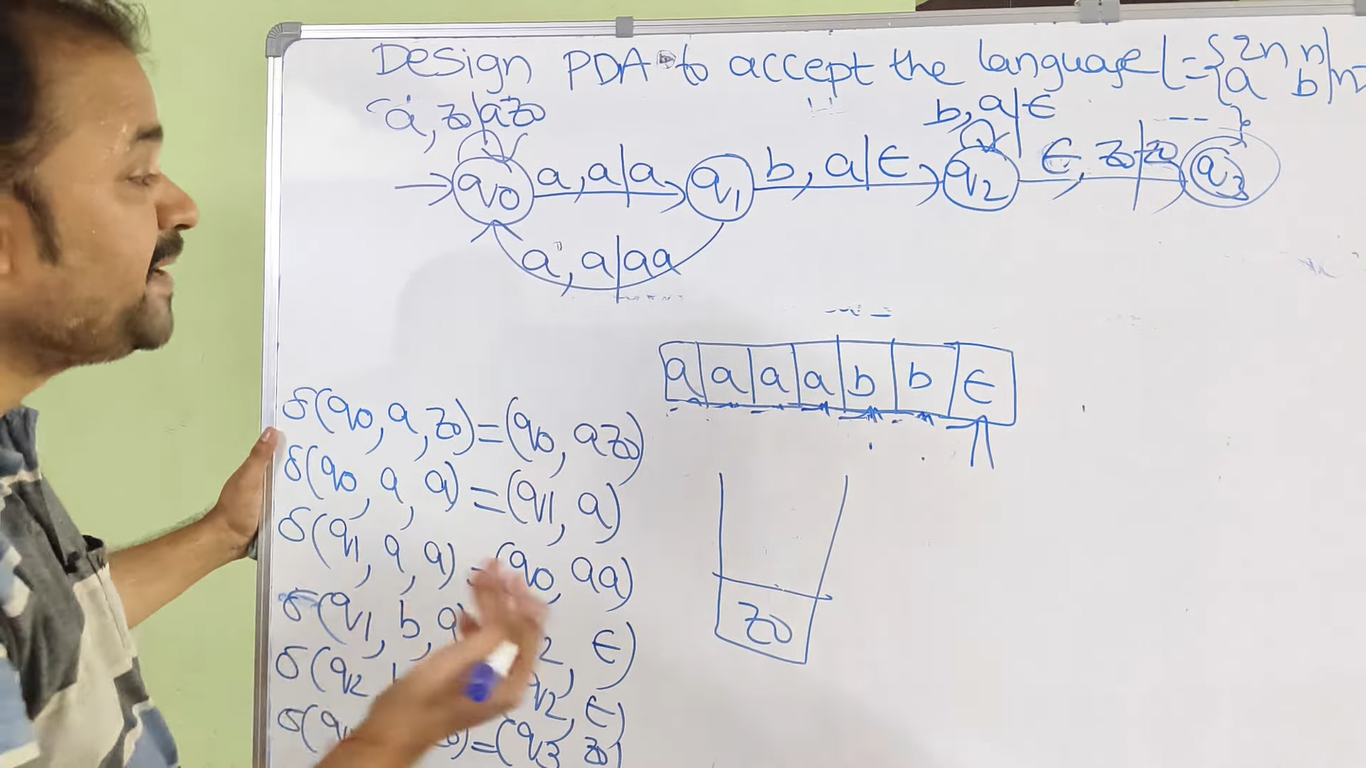 Design PDA to accept the language L={a^2n b^n|n
a, z0|az0
b, a|ε
q0 a, a|a q1 b, a|ε q2 ε, z0|z0 q3
a, a|aa
a a a a b b ε
δ(q0, a, z0)=(q0, az0)
δ(q0, a, a)=(q1, a)
δ(q1, a, a)=(q0, aa)
δ(q1, b, a 2, ε)
δ(q2, q2, ε)
)=(q3 z0)
z0